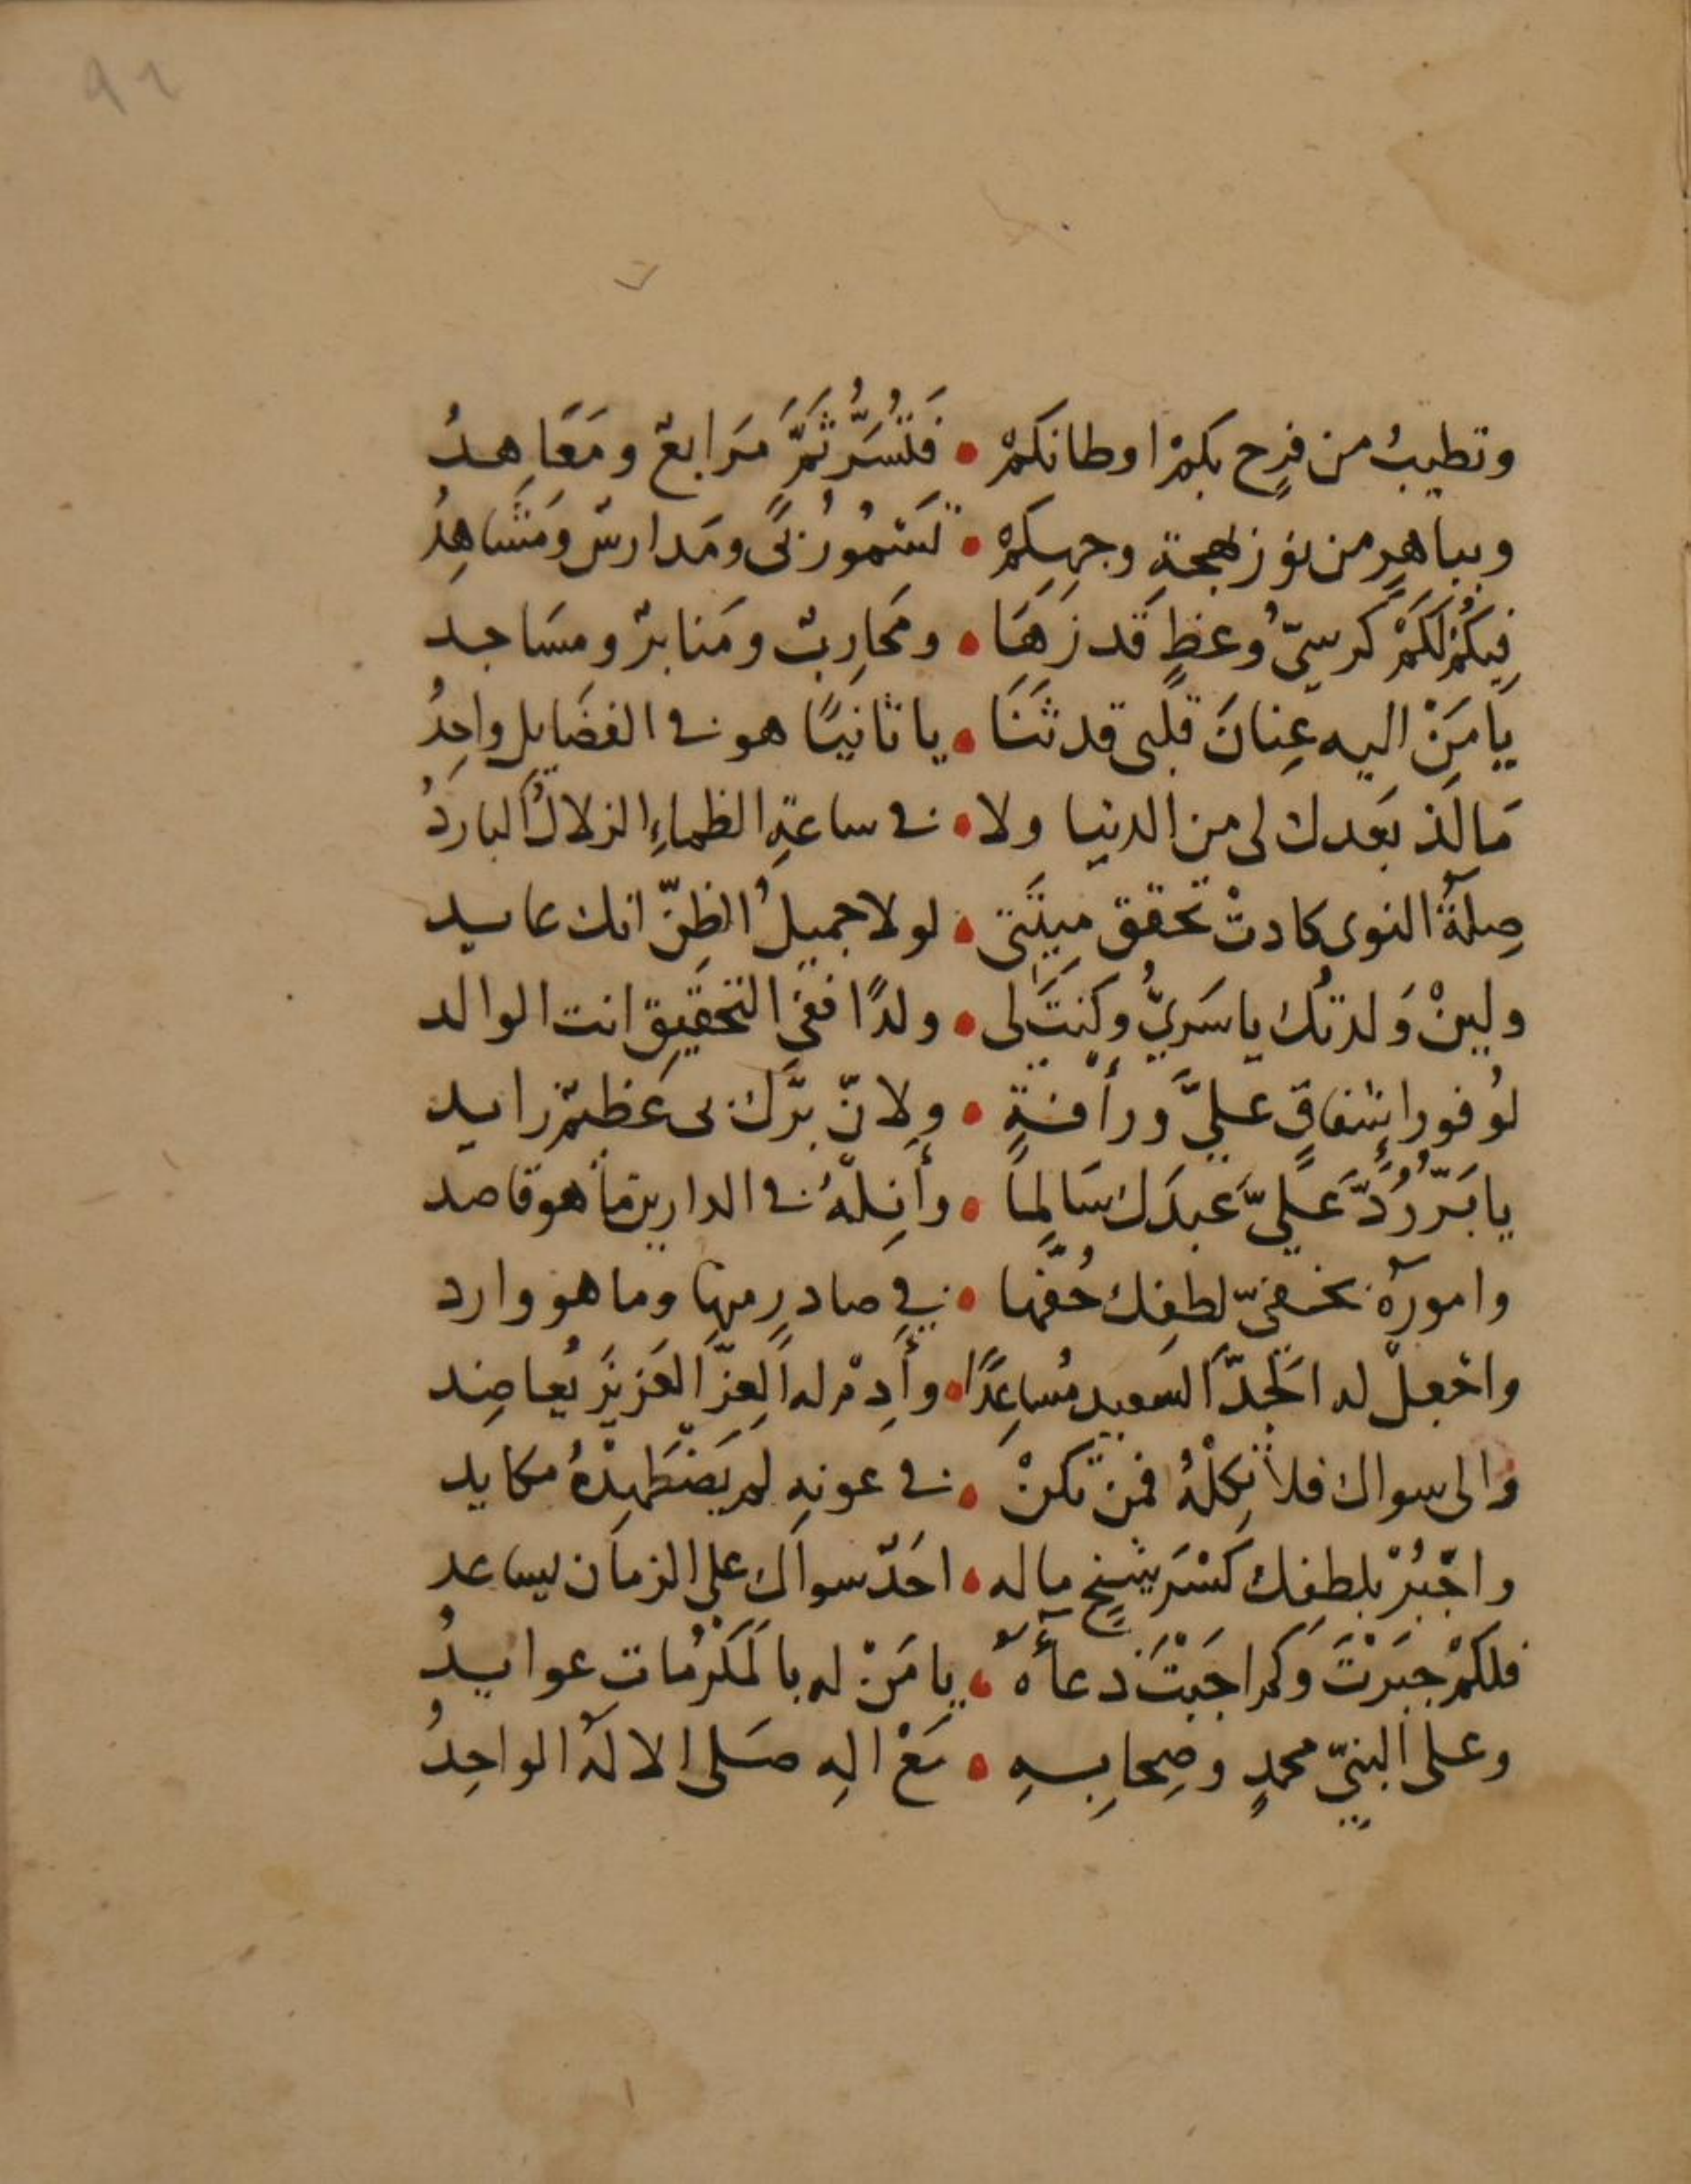 ٩٢
وتطيبُ من فرحٍ بكمْ اوطانكمْ • فَلَتُسَرُّ ثَمَّ مَرَابعٌ ومَعَاهِدُ
وبباهرٍ من نور بهجةِ وجهكمْ • تَسْمُو رُبًى ومَدارسٌ ومَشَاهِدُ
فبكُمْ لكَمْ كرسيُّ وعظٍ قَد زَهَا • ومَحَارِبٌ ومَنابرٌ ومسَاجد
يَا مَنْ اليه عِنانَ قلبى قد ثَنَا • يا ثانيًا هو فى الفضَايل واحِدُ
مَا لَذّ بَعدك لى من الدنيا ولا • فى ساعةِ الظماءِ الزلالُ الباردُ
صِلَةُ النوى كادتْ تحقق ميتَتى • لولا جميلُ الظنّ انك عايد
ولينْ وَلدتُك يا سَرِيُّ وكنتَ لى • ولدًا ففي التحقيقِ انت الوالد
لوُفور إشفاقٍ عليَّ ورأفةٍ • ولانّ برّك بى عَظيمٌ زايد
يا بَرّ رُدَّ عَليّ عَبدَك سَالِمًا • وأَنِلْهُ فى الدارين ما هو قاصد
وامورهُ بخفيّ لطفِك حُفَّها • في صادرٍ منها وما هو وارد
واجْعلْ له الجَدَّ السعيد مُسَاعِدًا • وأَدِمْ له العِزّ العَزيزَ يُعاضِد
والى سواك فلا تكِلْهُ فمن تكنْ • فى عونه لم يَضْطَهِدْهُ مكايد
واجْبُرْ بلطفِك كَسْرَ شيخٍ ماله • احَدٌ سواك على الزمان يساعد
فلكَمْ جبَرْتَ وكم اجَبْتَ دعآءَهُ • يا مَنْ له بالمَكْرُمات عوايدُ
وعلى النبيّ محمدٍ وصِحابِهِ • مَعْ الهِ صَلى الالهُ الواحِدُ